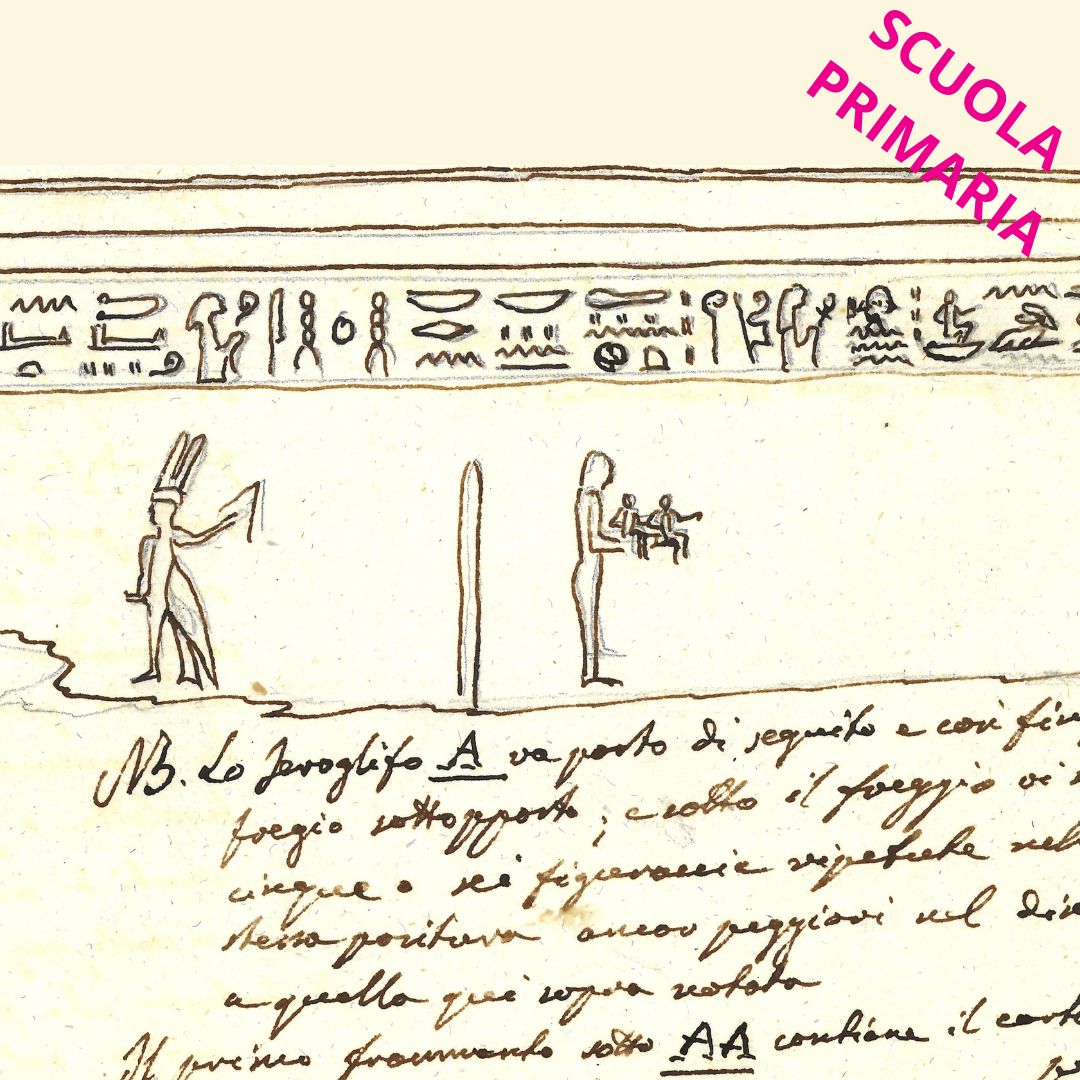 SCUOLA
PRIMARIA
NB. Lo Jeroglifo A va posto di seguito e così
fregio sottopposto; e sotto il freggio vi
cinque o sei figuraccie ripetute
stessa positura ancor peggiori nel
a quella qui sopra notata
Il primo frammento sotto AA contiene il